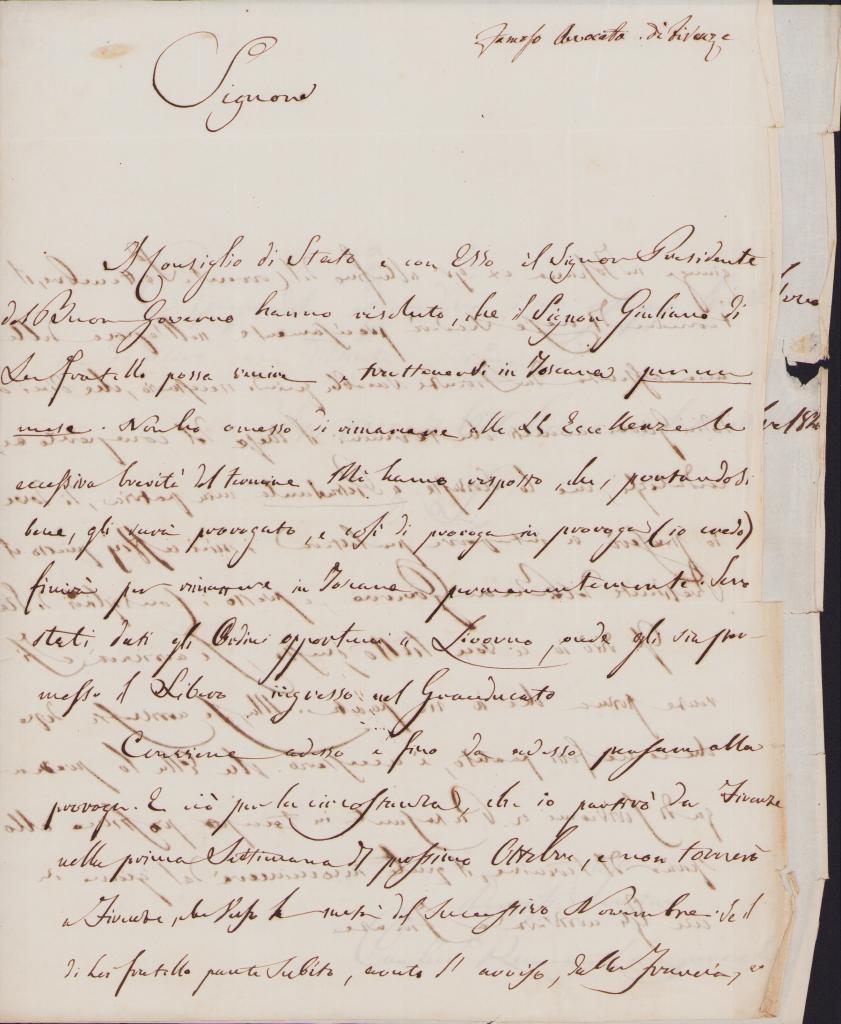 Famoso Avvocato di Firenze
Signore
Il Consiglio di Stato e con Esso il Signor Presidente
del Buon Governo hanno risoluto, che il Signor Giuliano di
Lei fratello possa venire e trattenersi in Toscana per un
mese. Non ho omesso di rimarcare alle LL Eccellenze la
eccessiva brevità del termine. Mi hanno risposto, che, portandosi
bene, gli sarà prorogato, e così di proroga in proroga (io credo)
finirà per rimanere in Toscana permanentemente. Sono
stati dati gli Ordini opportuni a Livorno, onde gli sia per-
messo il Libero ingresso nel Granducato
Conviene adesso e fino da adesso pensare alla
proroga. E ciò per la circostanza, che io partirò da Firenze
nella prima Settimana del prossimo Ottobre, e non tornerò
a Firenze, che verso la metà del Successivo Novembre. Se il
di Lei fratello parte Subito, avuto l'avviso, dalla Francia,
1820